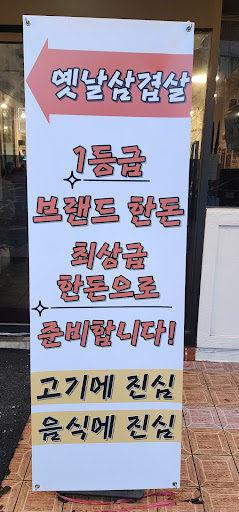 옛날삼겹살
1등급
브랜드 한돈
최상급
한돈으로
준비합니다!
고기에 진심
음식에 진심